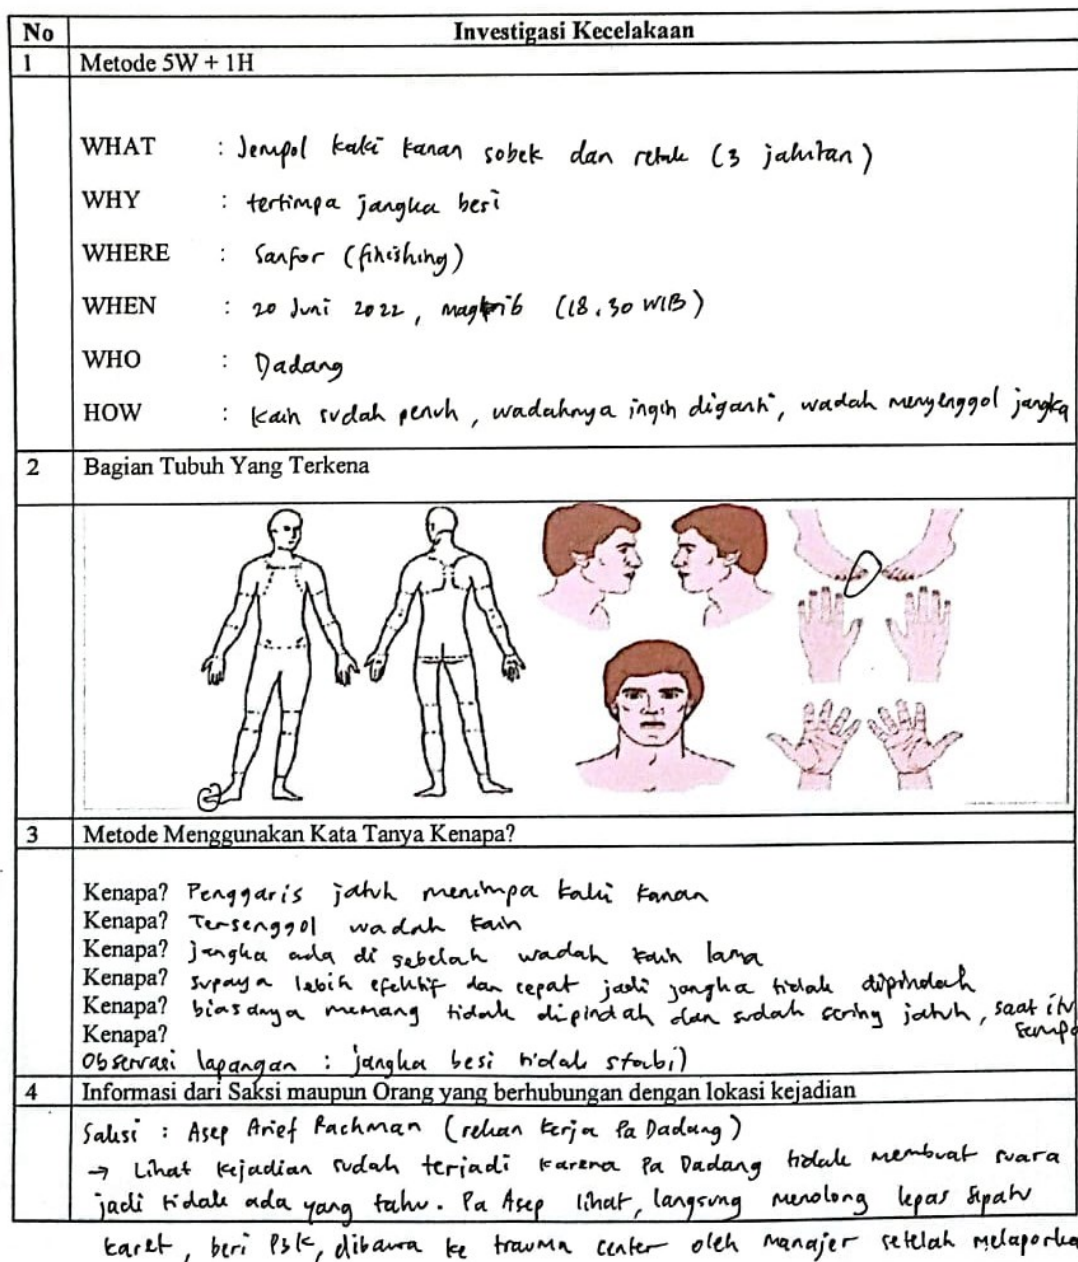 No Investigasi Kecelakaan
1 Metode 5W + 1H
WHAT : Jempol kaki kanan sobek dan retak (3 jahitan)
WHY : tertimpa jangka besi
WHERE : Sanfor (finishing)
WHEN : 20 Juni 2022, maghrib (18.30 WIB)
WHO : Dadang
HOW : Kain sudah penuh, wadahnya ingin diganti, wadah menyenggol jangka
2 Bagian Tubuh Yang Terkena
3 Metode Menggunakan Kata Tanya Kenapa?
Kenapa? Penggaris jatuh menimpa kaki kanan
Kenapa? Tersenggol wadah kain
Kenapa? jangka ada di sebelah wadah kain lama
Kenapa? supaya lebih efektif dan cepat jadi jangka tidak dipindah
Kenapa? biasanya memang tidak dipindah dan sudah sering jatuh, saat itu
Kenapa?
Observasi lapangan : jangka besi tidak stabil
4 Informasi dari Saksi maupun Orang yang berhubungan dengan lokasi kejadian
Saksi : Asep Arief Rachman (rekan kerja Pa Dadang)
→ Lihat kejadian sudah terjadi karena Pa Dadang tidak membuat suara
jadi tidak ada yang tahu. Pa Asep lihat, langsung menolong lepas sepatu
karet, beri P3K, dibawa ke trauma center oleh manajer setelah